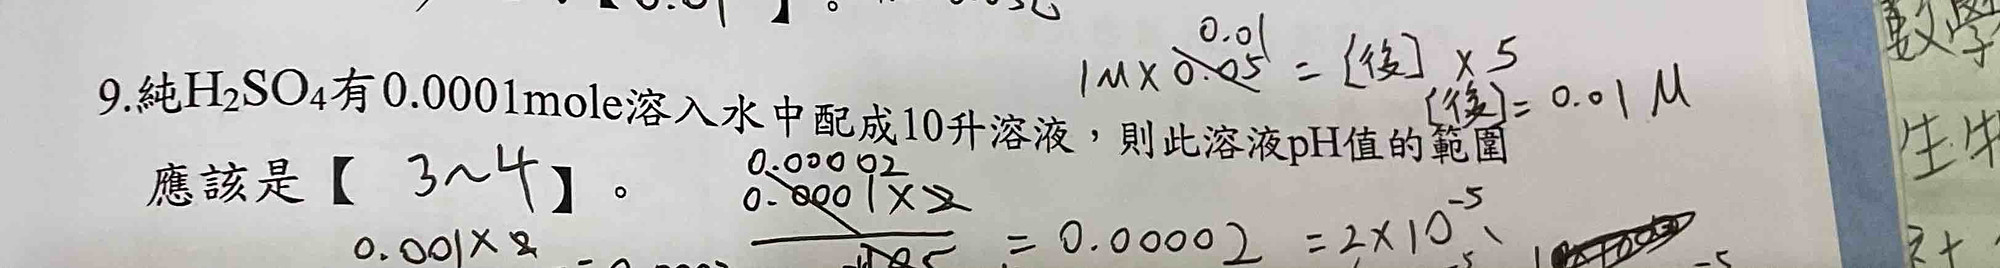 【0.01】。
1M × 0.05 = [後] × 5
0.01
[後] = 0.01 M
9.純H₂SO₄有0.0001mole溶入水中配成10升溶液,則此溶液pH值的範圍
應該是【 3~4 】。
0.00002
0.0001×2
= 0.00002 = 2×10⁻⁵
0.001×2
數學
生
社